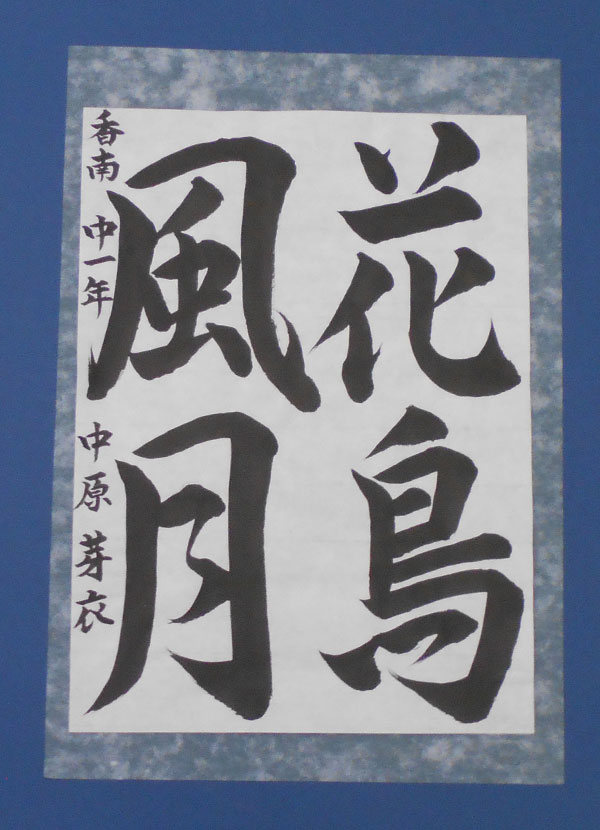 花鳥
風月
香南 中一年 中原芽衣